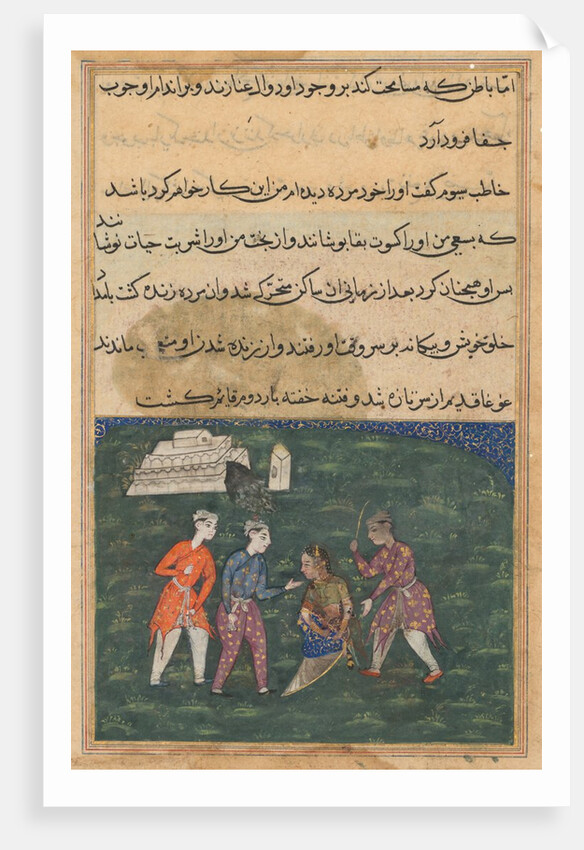 اما باطن که مسامحت کند بر وجود او دوال عنا زند و بر اندام او چوب
جفا فرود آرد
خاطب سیوم گفت او را خود مرده دیده ام من این کار خواهم کرد باشد
که بسعی من او را کسوت بقا بوشانند و از بخت من او را شربت حیات نوشانند
بس او همچنان کرد بعد از زمانی ان ساکن متحرک شد وان مرده زنده کشت
خلق خویش و بیکانه بر سر وقت او رفتند و از زنده شدن او متعجب ماندند
غوغا قدیم از سر تازه شد و فتنه خفته بار دوم قایم کشت